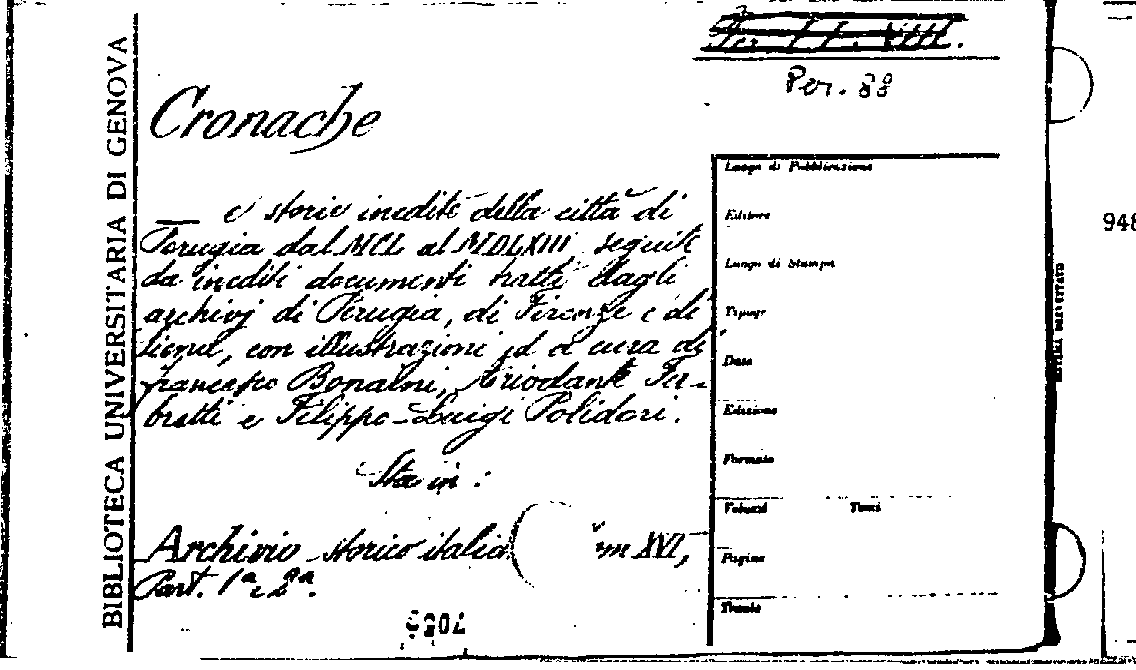 BIBLIOTECA UNIVERSITARIA DI GENOVA
Per. 88
Cronache
— e storie inedite della città di
Perugia dal MCL al MDLXIII, seguite
da inediti documenti tratti dagli
archivj di Perugia, di Firenze e di
Siena, con illustrazioni ed a cura di
Francesco Bonaini, Ariodante Fa-
bretti e Filippo-Luigi Polidori.
Sta in:
Archivio storico italia XVI,
Part. 1ª e 2ª.
Luogo di Pubblicazione
Editore
Luogo di Stampa
Tipogr
Data
Edizione
Formato
Volumi Tomi
Pagine
948